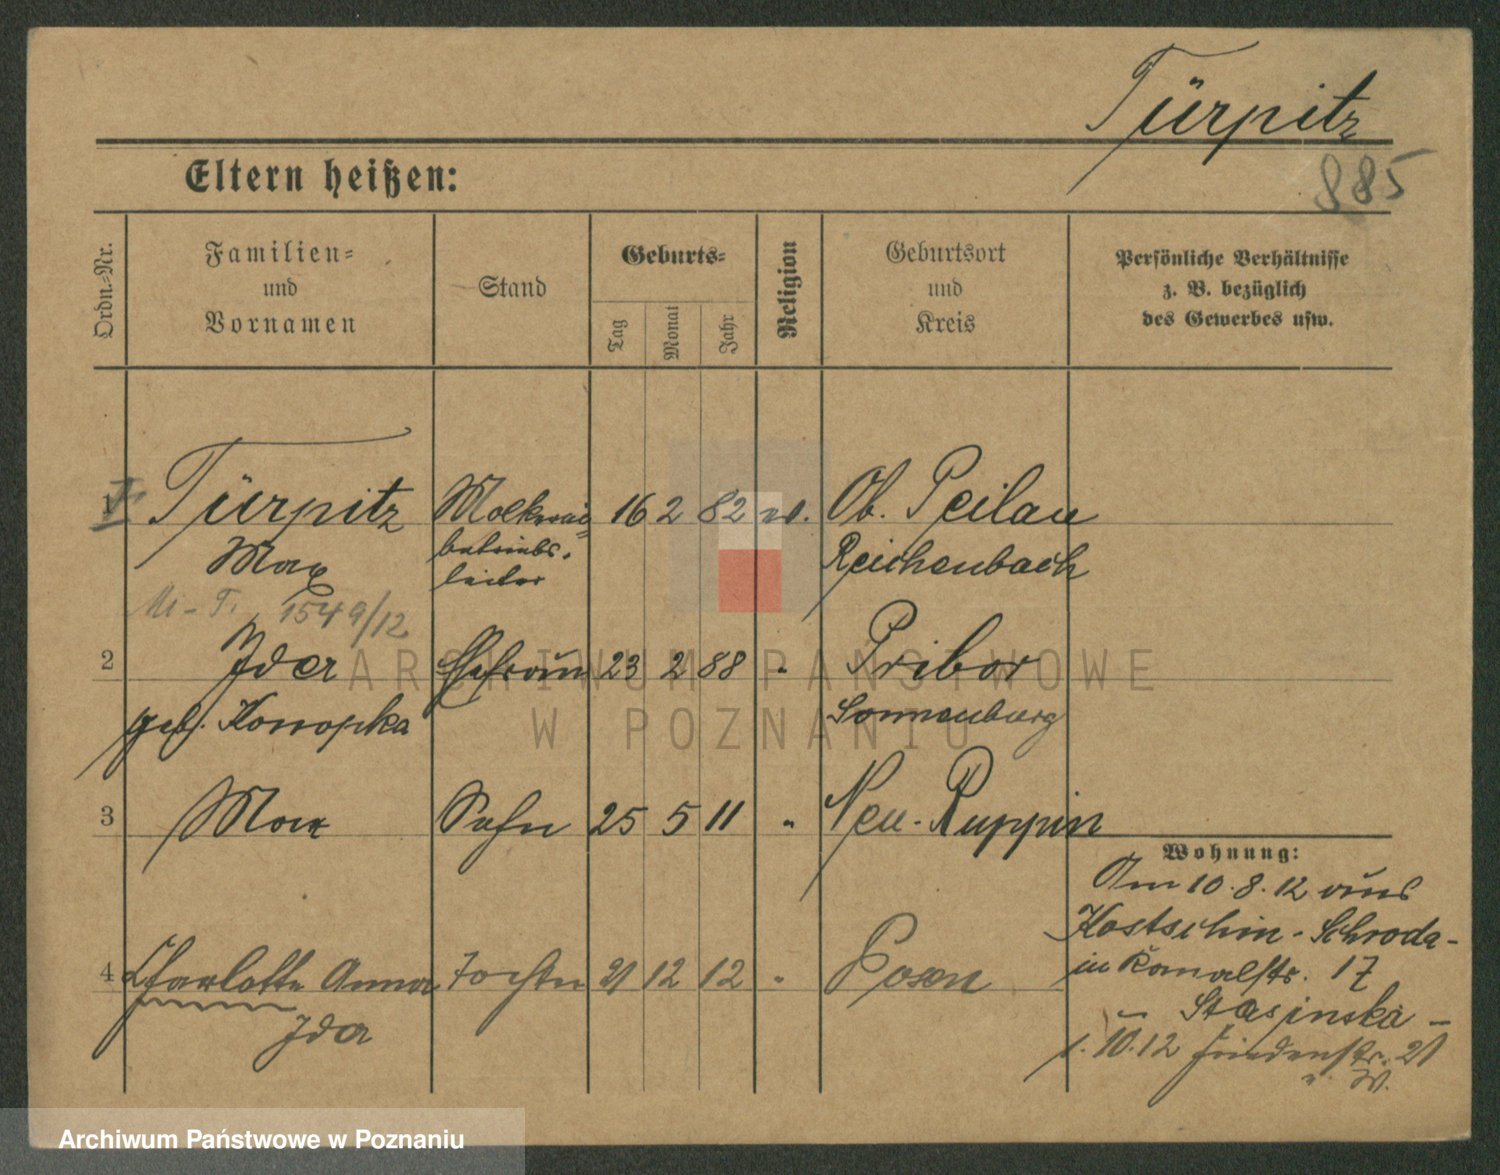 Türpitz
885
Eltern heißen:
Ordn.-Nr.
Familien- und Vornamen
Stand
Geburts-
Tag
Monat
Jahr
Religion
Geburtsort und Kreis
Persönliche Verhältnisse
z. B. bezüglich
des Gewerbes usw.
1 Türpitz Molkerei- 16 2 82 ev. Ob. Peilau
Max betriebs- Reichenbach
leiter
1549/12
2 Ida Ehefrau 23 2 88 " Pribor
geb. Konopka Sonnenburg
3 Max Sohn 25 5 11 " Neu-Ruppin
Wohnung:
Am 10.8.12 aus
Kostschin-Schroda-
in Kanalstr. 17
4 Charlotte Anna Tochter 21 12 12 " Posen
Ida
Stasinska -
1. 10. 12 Friedenstr. 21
ARCHIWUM PAŃSTWOWE
W POZNANIU
Archiwum Państwowe w Poznaniu